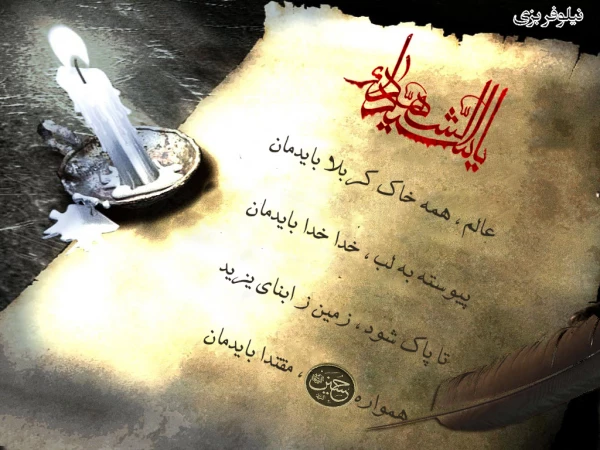 نیلوفر بزی
یا سیدالشهداء
عالم ، همه خاک کربلا بایدمان
پیوسته به لب ، خدا خدا بایدمان
تا پاک شود ، زمین ز ابنای یزید
همواره حسین ، مقتدا بایدمان